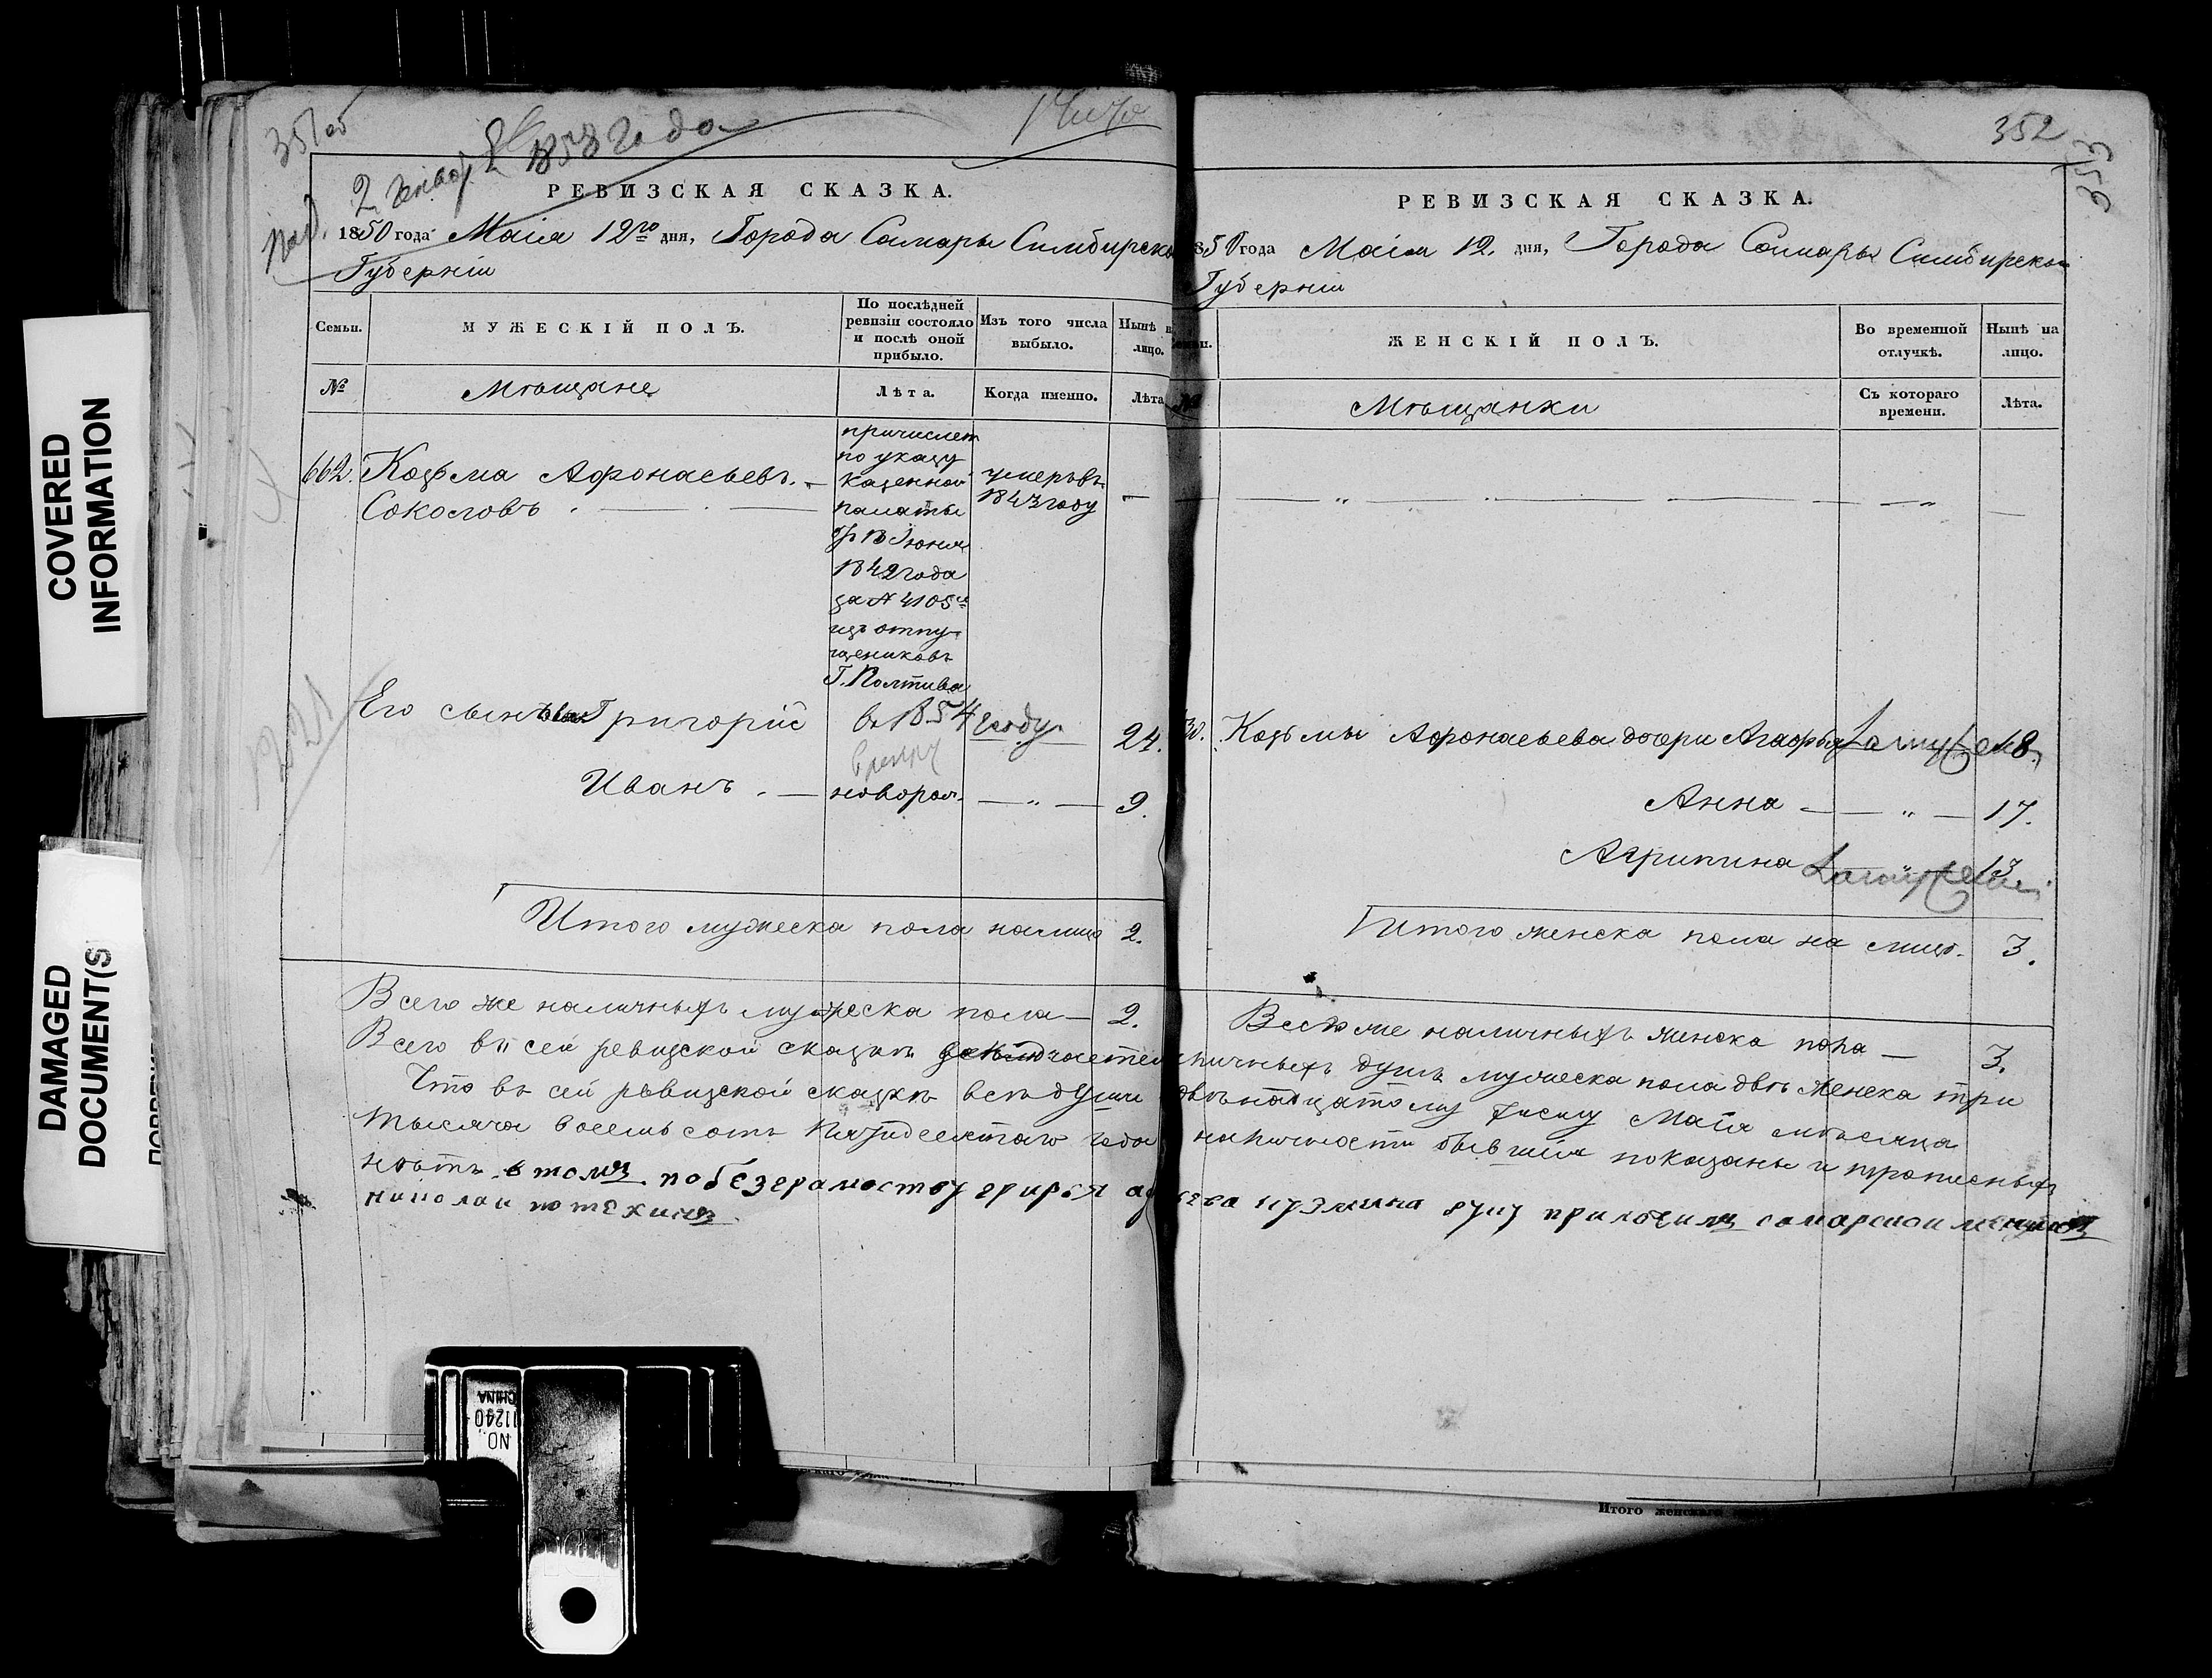 COVERED
INFORMATION
DAMAGED
DOCUMENT(S)
351об
2 Генвар 1858 года
РЕВИЗСКАЯ СКАЗКА.
1850 года Маія 12го дня, Города Самары Симбирско
Губерніи
Семьи.
МУЖЕСКІЙ ПОЛЪ.
По послѣдней ревизіи состояло и послѣ оной прибыло.
Изъ того числа выбыло.
Нынѣ н лицо.
№
Мѣщане
Лѣта.
Когда именно.
Лѣта
662. Козьма Афонасьевъ
Соколовъ
причислен
по указу
казенной
палаты
13 Іюня
1842 года
за № 4105
изъ отпу-
щениковъ
Г. Полтива
умеръ въ
1843 году
Его сыновья Григорій въ 1854 году 24.
Иванъ новорож. 9.
Итого мужеска пола налицо 2.
Всего же наличныхъ мужеска пола 2.
Всего въ сей ревизской сказкѣ
Что въ сей ревизской сказкѣ всѣ души
тысяча восемь сотъ пятидесятаго года
нѣтъ в томъ
николаи потехинъ
352
353
РЕВИЗСКАЯ СКАЗКА.
850 года Маія 12. дня, Города Самары Симбирской
Губерніи
ЖЕНСКІЙ ПОЛЪ.
Во временной отлучкѣ.
Нынѣ на лицо.
№
Мѣщанки
Съ котораго времени.
Лѣта.
Козьмы Афонасьева дочери Агафья Замужем 18.
Анна 17.
Агрипина Замужем 13.
Итого женска пола на лицо 3.
Всего же наличныхъ женска пола 3.
личныхъ душъ мужеска пола двѣ женска три
двѣнатцатому числу Маія мѣсяца
наличности бывшія показаны и прописныхъ
руку приложилъ самарской мещанинъ
Итого женскаго
NO. 11240
CHINA